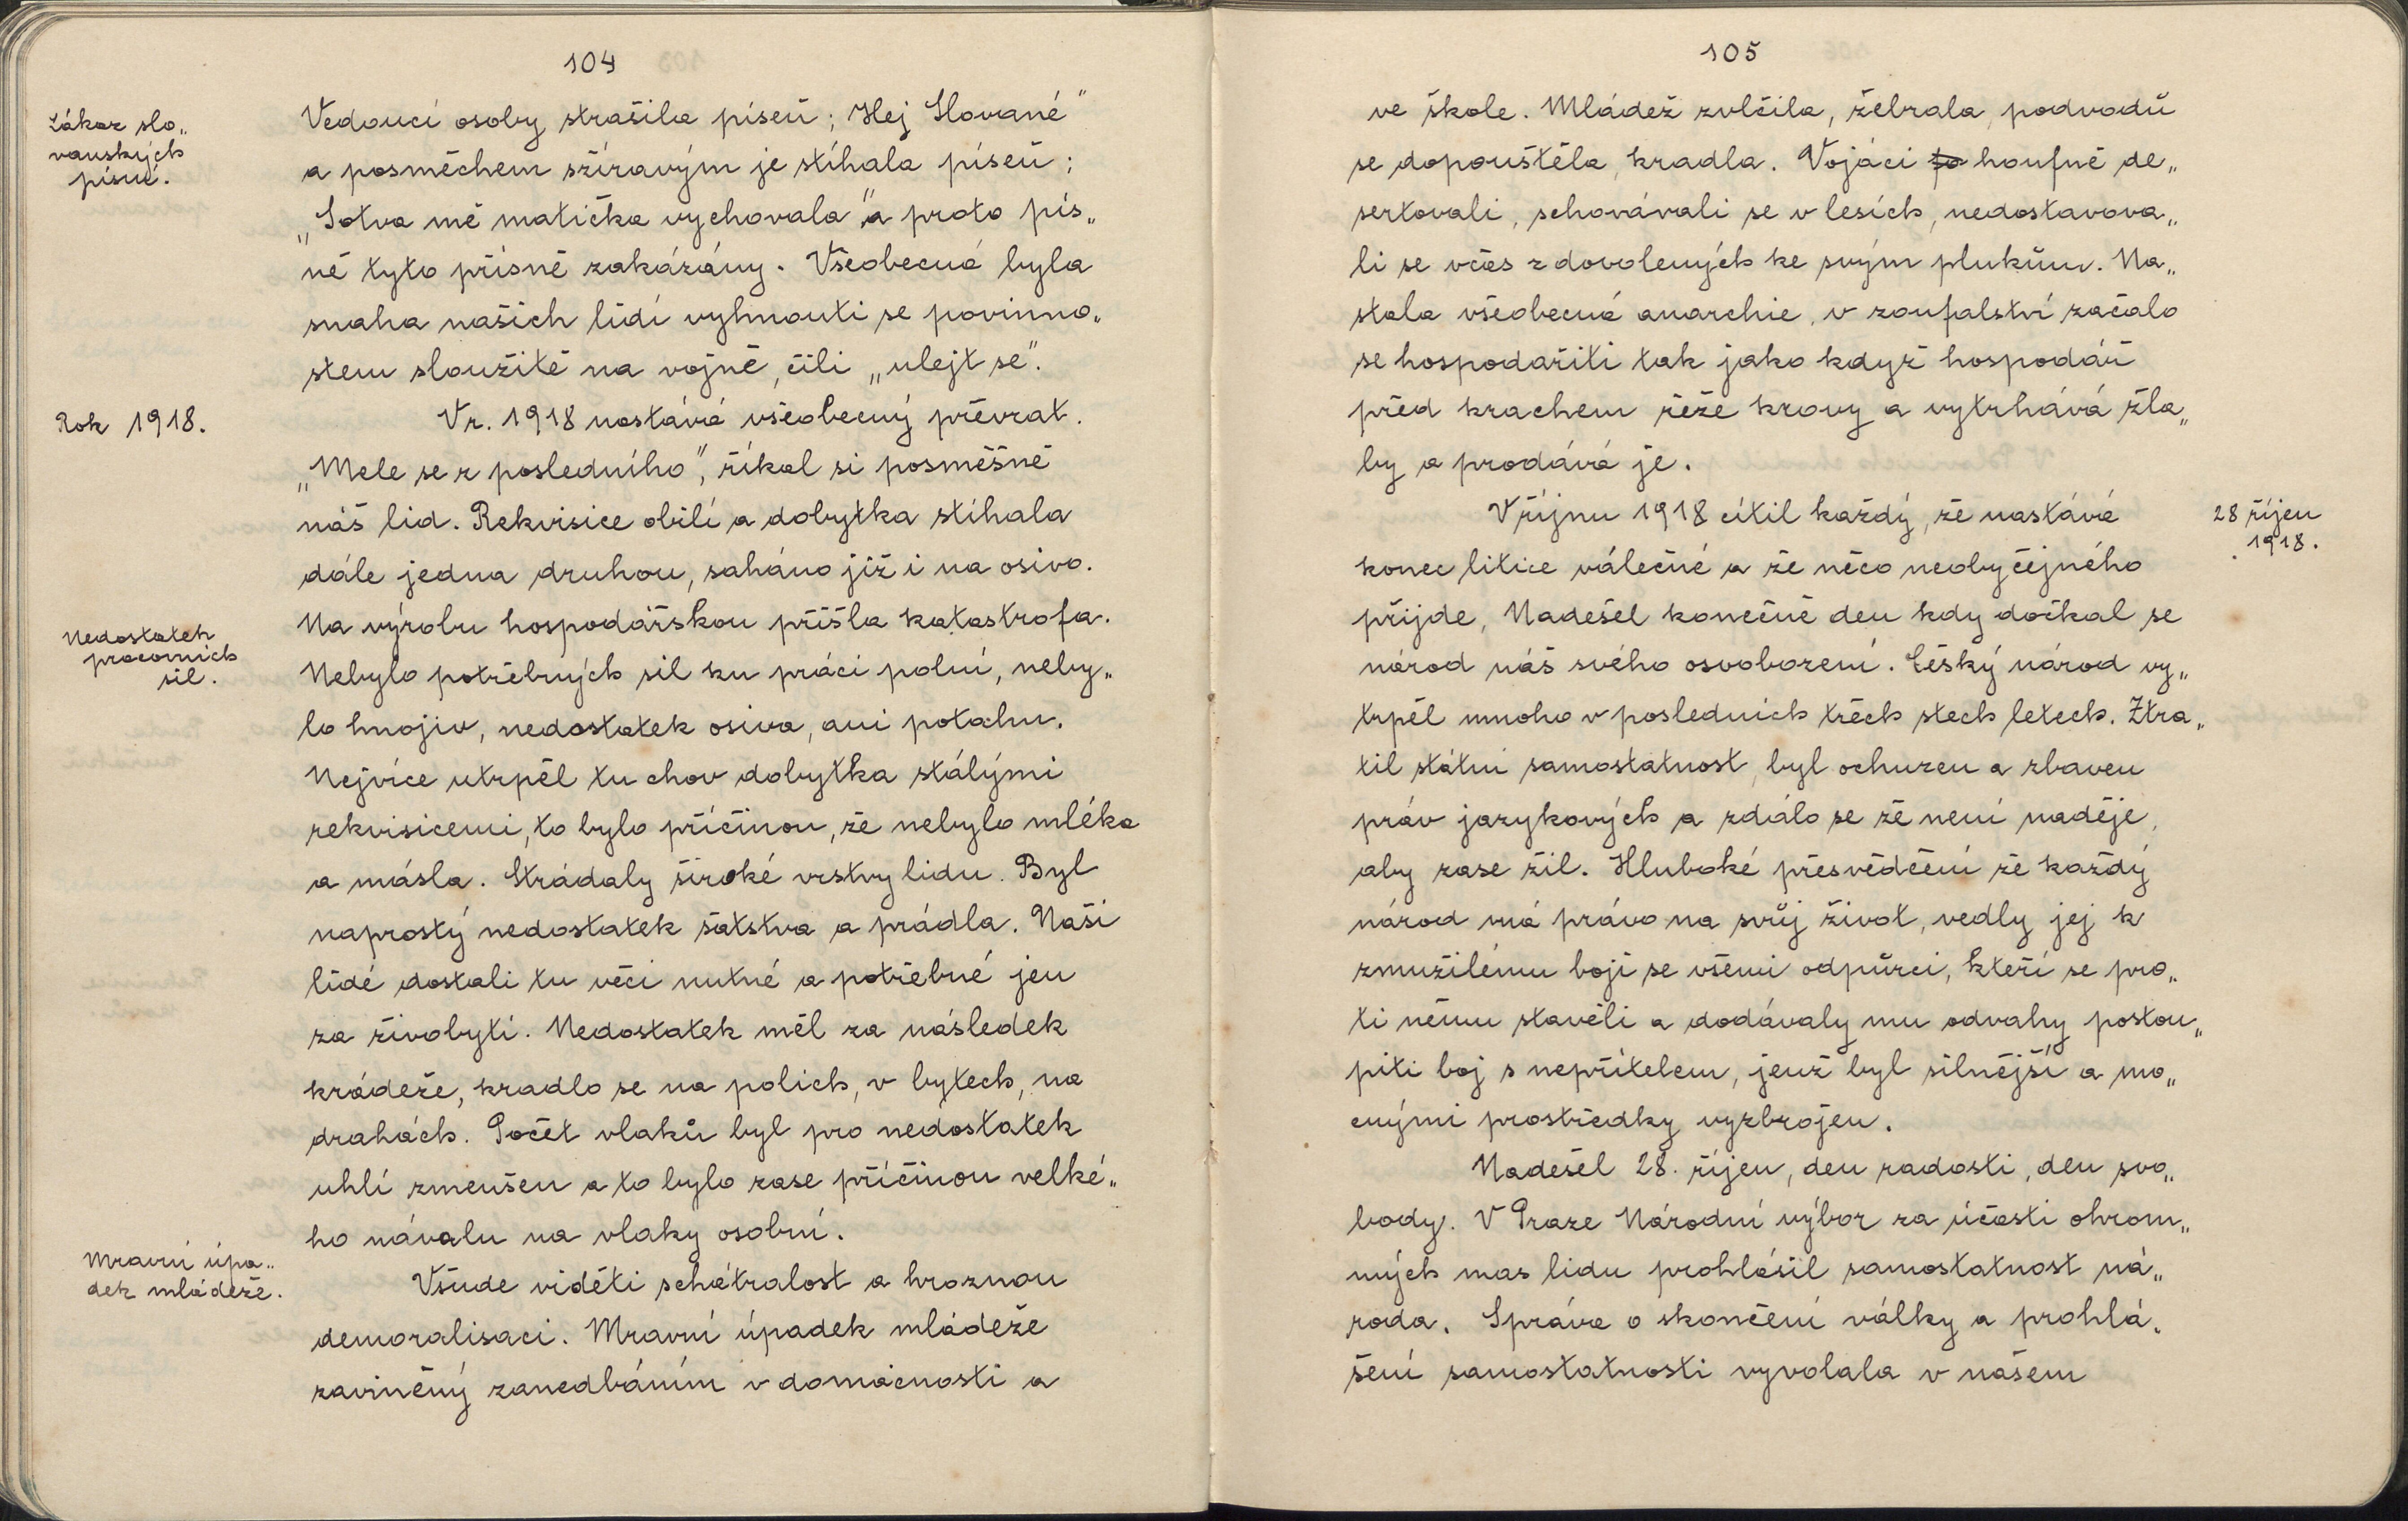 104
Zákaz slo„
vanských
písní.
Vedoucí osoby strašila píseň; Hej Slované"
a posměchem sžíravým je stíhala píseň;
„Sotva mě matička vychovala" a proto pís„
ně tyto přísně zakázány. Všeobecná byla
snaha našich lidí vyhnouti se povinno„
stem sloužitě na vojně, čili „ulejt se".
Rok 1918.
V r. 1918 nastává všeobecný převrat.
„Mele se z posledního", říkal si posměšně
náš lid. Rekvisice obilí a dobytka stíhala
dále jedna druhou, saháno již i na osivo.
Na výrobu hospodářskou přišla katastrofa.
Nedostatek
pracovních
sil.
Nebylo potřebných sil ku práci polní, neby„
lo hnojiv, nedostatek osiva, ani potahu.
Nejvíce utrpěl tu chov dobytka stálými
rekvisicemi, to bylo příčinou, že nebylo mléka
a másla. Strádaly široké vrstvy lidu. Byl
naprostý nedostatek šatstva a prádla. Naši
lidé dostali tu věci nutné a potřebné jen
za živobytí. Nedostatek měl za následek
krádeže, kradlo se na polích, v bytech, na
drahách. Počet vlaků byl pro nedostatek
uhlí zmenšen a to bylo zase příčinou velké„
ho návalu na vlaky osobní.
Mravní úpa„
dek mládeže.
Všude viděti schátralost a hroznou
demoralisaci. Mravní úpadek mládeže
zaviněný zanedbáním v domácnosti a
105
ve škole. Mládež zvlčila, žebrala, podvodů
se dopouštěla, kradla. Vojáci to houfně de„
sertovali, schovávali se v lesích, nedostavova„
li se včas z dovolených ke svým plukům. Na„
stala všeobecná anarchie, v zoufalství začalo
se hospodařiti tak jako když hospodář
před krachem řeže krovy a vytrhává žla„
by a prodává je.
28 říjen
1918.
V říjnu 1918 cítil každý, že nastává
konec litice válečné a že něco neobyčejného
přijde, Nadešel konečně den kdy dočkal se
národ náš svého osvobození. Český národ vy„
trpěl mnoho v posledních třech stech letech. Ztra„
til státní samostatnost, byl ochuzen a zbaven
práv jazykových a zdálo se že není naděje,
aby zase žil. Hluboké přesvědčení že každý
národ má právo na svůj život, vedly jej k
zmužilému boji se všemi odpůrci, kteří se pro„
ti němu stavěli a dodávaly mu odvahy postou„
piti boj s nepřítelem, jenž byl silnější a mo„
cnými prostředky vyzbrojen.
Nadešel 28. říjen, den radosti, den svo„
body. V Praze Národní výbor za účasti ohrom„
ných mas lidu prohlásil samostatnost ná„
roda. Správa o skončení války a prohlá„
šení samostatnosti vyvolala v našem